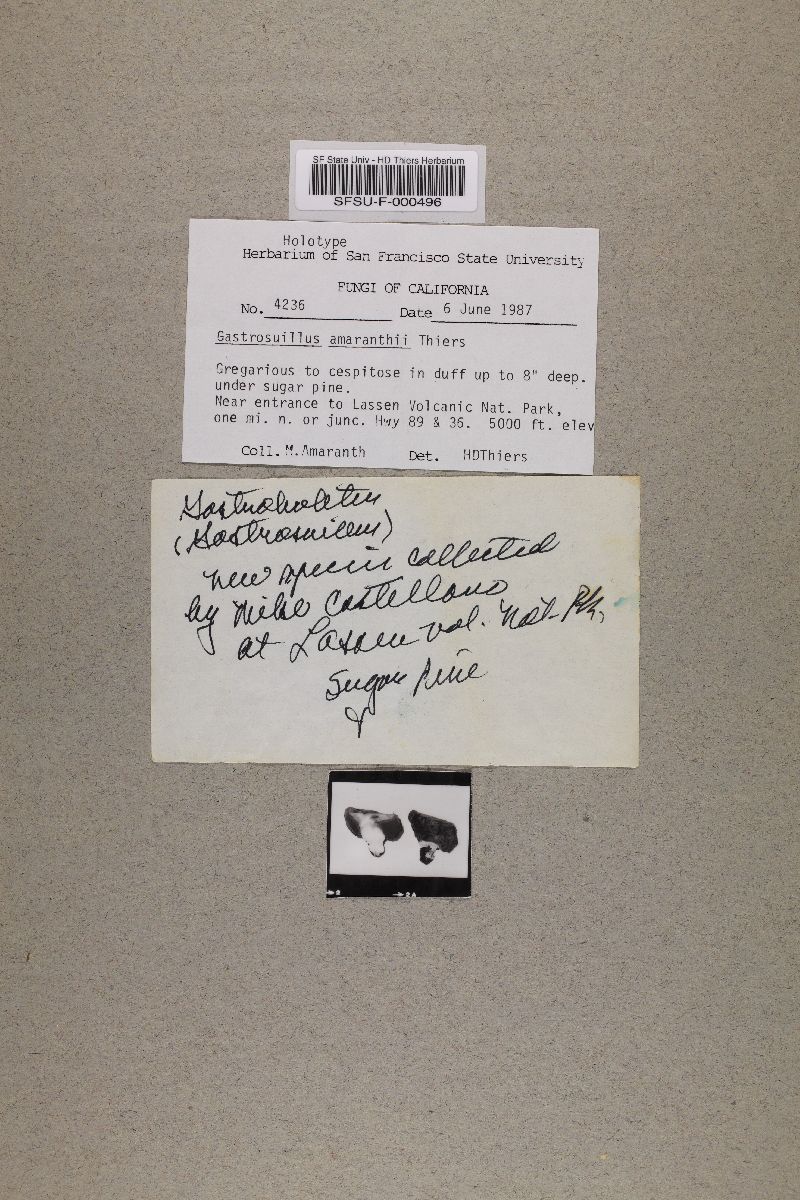 SF State Univ - HD Thiers Herbarium
SFSU-F-000496
Holotype
Herbarium of San Francisco State University
FUNGI OF CALIFORNIA
No. 4236 Date 6 June 1987
Gastrosuillus amaranthii Thiers
Gregarious to cespitose in duff up to 8" deep.
under sugar pine.
Near entrance to Lassen Volcanic Nat. Park,
one mi. n. or junc. Hwy 89 & 36. 5000 ft. elev
Coll. M.Amaranth Det. HDThiers
Gastroboletus
(Gastrosuillus)
new species collected
by Mike Castellano
at Lassen vol. Nat. Pk.
Sugar Pine